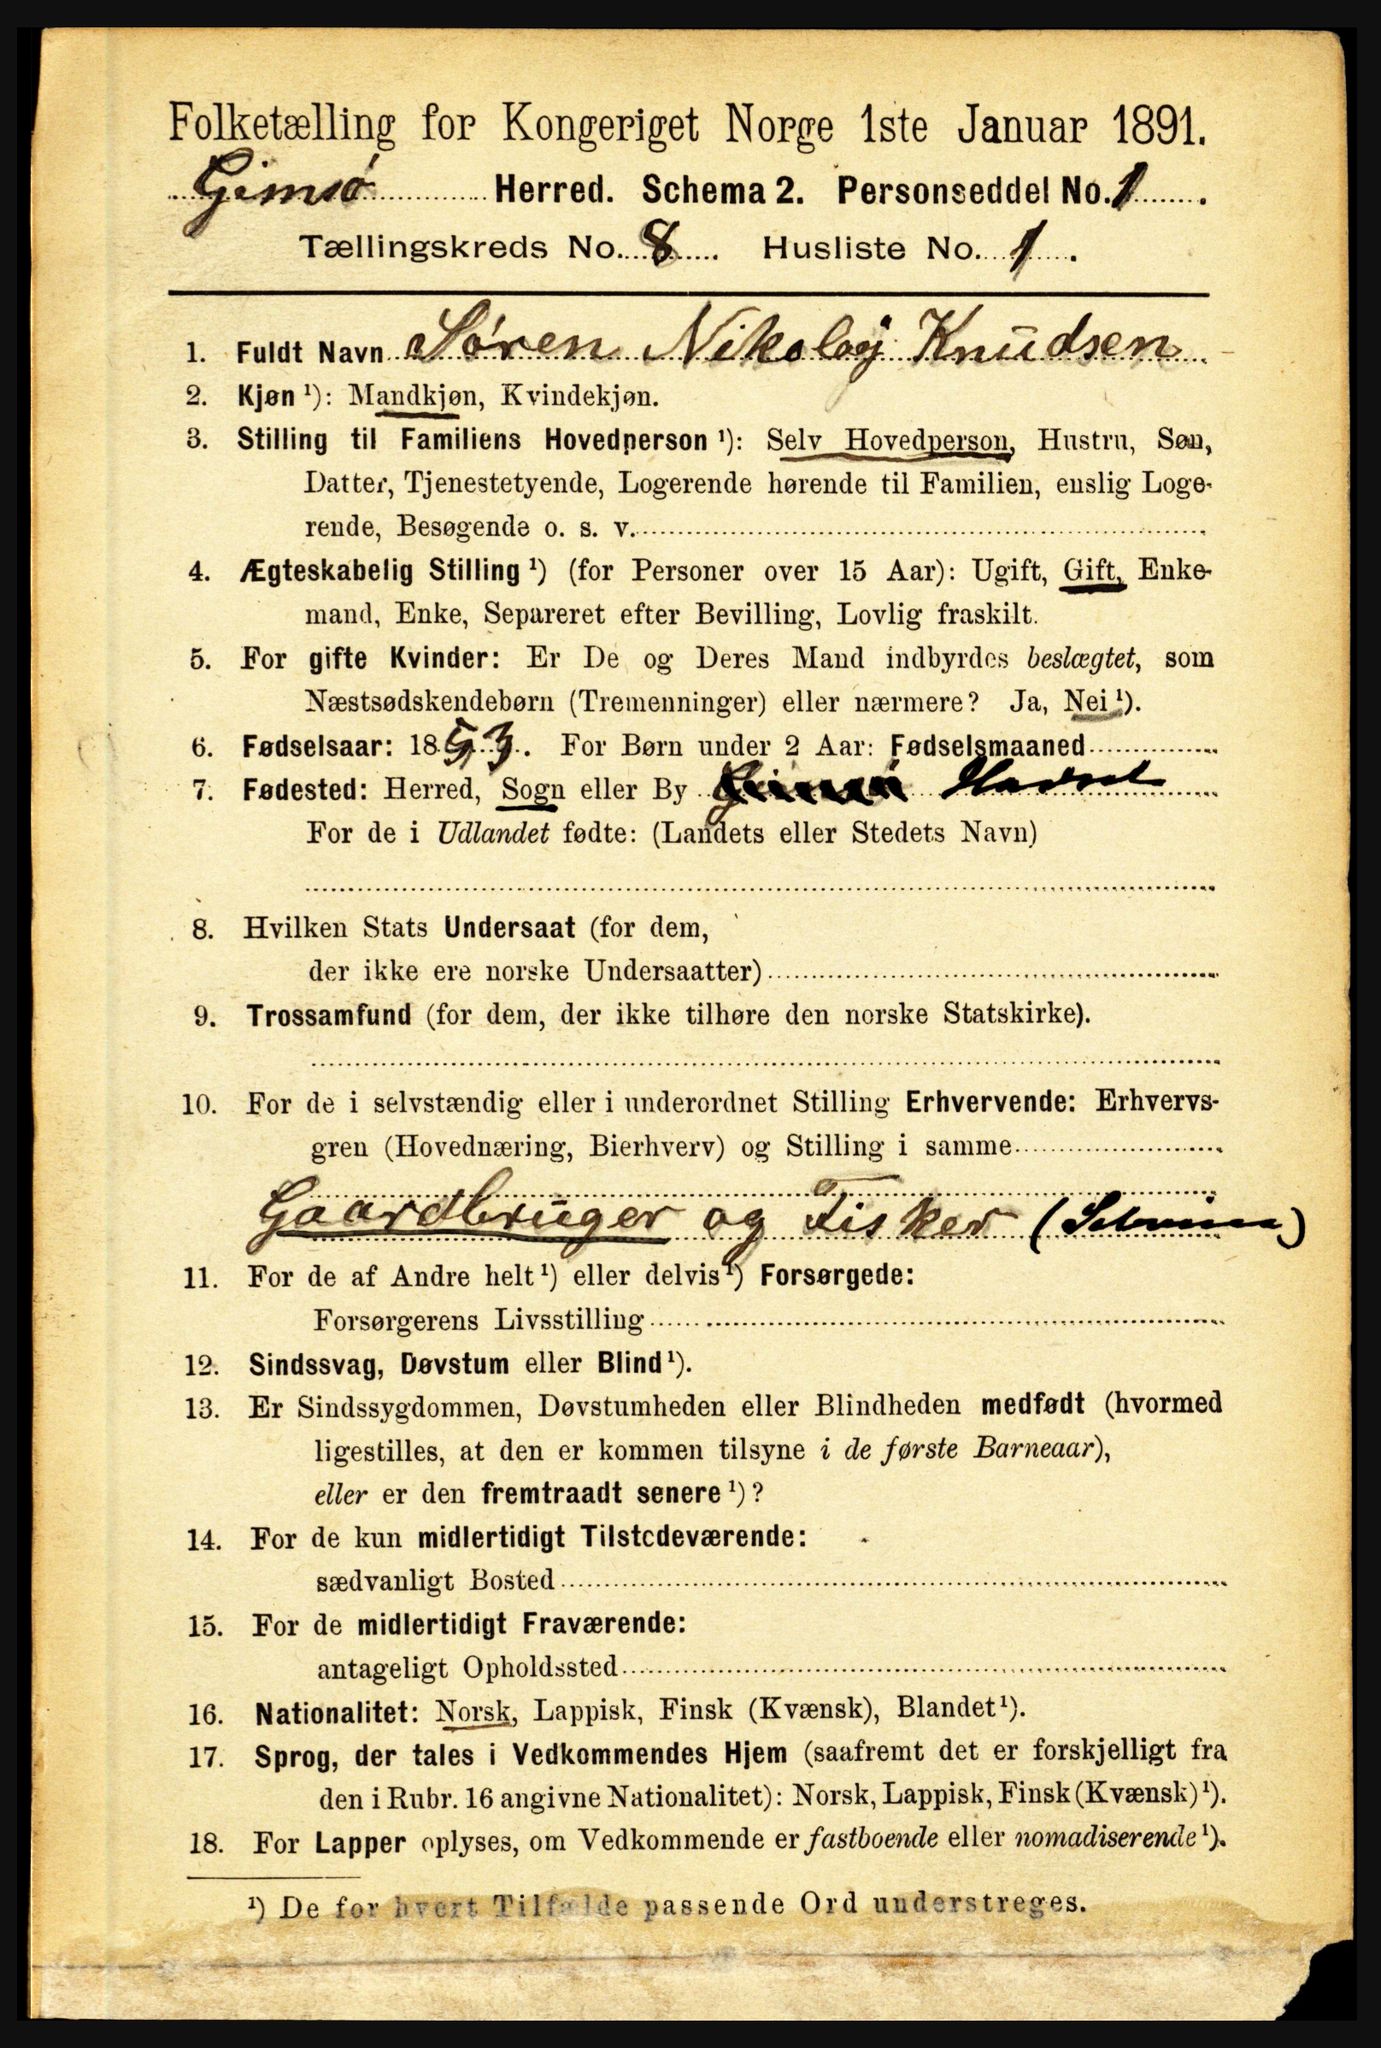 Folketælling for Kongeriget Norge 1ste Januar 1891.
Gimsø Herred. Schema 2. Personseddel No. 1.
Tællingskreds No. 8. Husliste No. 1.
1. Fuldt Navn Søren Nikolaÿ Knudsen
2. Kjøn ¹): Mandkjøn, Kvindekjøn.
3. Stilling til Familiens Hovedperson ¹): Selv Hovedperson, Hustru, Søn,
Datter, Tjenestetyende, Logerende hørende til Familien, enslig Loge-
rende, Besøgende o. s. v.
4. Ægteskabelig Stilling ¹) (for Personer over 15 Aar): Ugift, Gift, Enke-
mand, Enke, Separeret efter Bevilling, Lovlig fraskilt.
5. For gifte Kvinder: Er De og Deres Mand indbyrdes beslægtet, som
Næstsødskendebørn (Tremenninger) eller nærmere? Ja, Nei ¹).
6. Fødselsaar: 1853. For Børn under 2 Aar: Fødselsmaaned
7. Fødested: Herred, Sogn eller By Gimsø Hadsel
For de i Udlandet fødte: (Landets eller Stedets Navn)
8. Hvilken Stats Undersaat (for dem,
der ikke ere norske Undersaatter)
9. Trossamfund (for dem, der ikke tilhøre den norske Statskirke).
10. For de i selvstændig eller i underordnet Stilling Erhvervende: Erhvervs-
gren (Hovednæring, Bierhverv) og Stilling i samme
Gaardbruger og Fisker
11. For de af Andre helt ¹) eller delvis ¹) Forsørgede:
Forsørgerens Livsstilling
12. Sindssvag, Døvstum eller Blind ¹).
13. Er Sindssygdommen, Døvstumheden eller Blindheden medfødt (hvormed
ligestilles, at den er kommen tilsyne i de første Barneaar),
eller er den fremtraadt senere ¹)?
14. For de kun midlertidigt Tilstedeværende:
sædvanligt Bosted
15. For de midlertidigt Fraværende:
antageligt Opholdssted
16. Nationalitet: Norsk, Lappisk, Finsk (Kvænsk), Blandet ¹).
17. Sprog, der tales i Vedkommendes Hjem (saafremt det er forskjelligt fra
den i Rubr. 16 angivne Nationalitet): Norsk, Lappisk, Finsk (Kvænsk) ¹).
18. For Lapper oplyses, om Vedkommende er fastboende eller nomadiserende ¹).
¹) De for hvert Tilfælde passende Ord understreges.